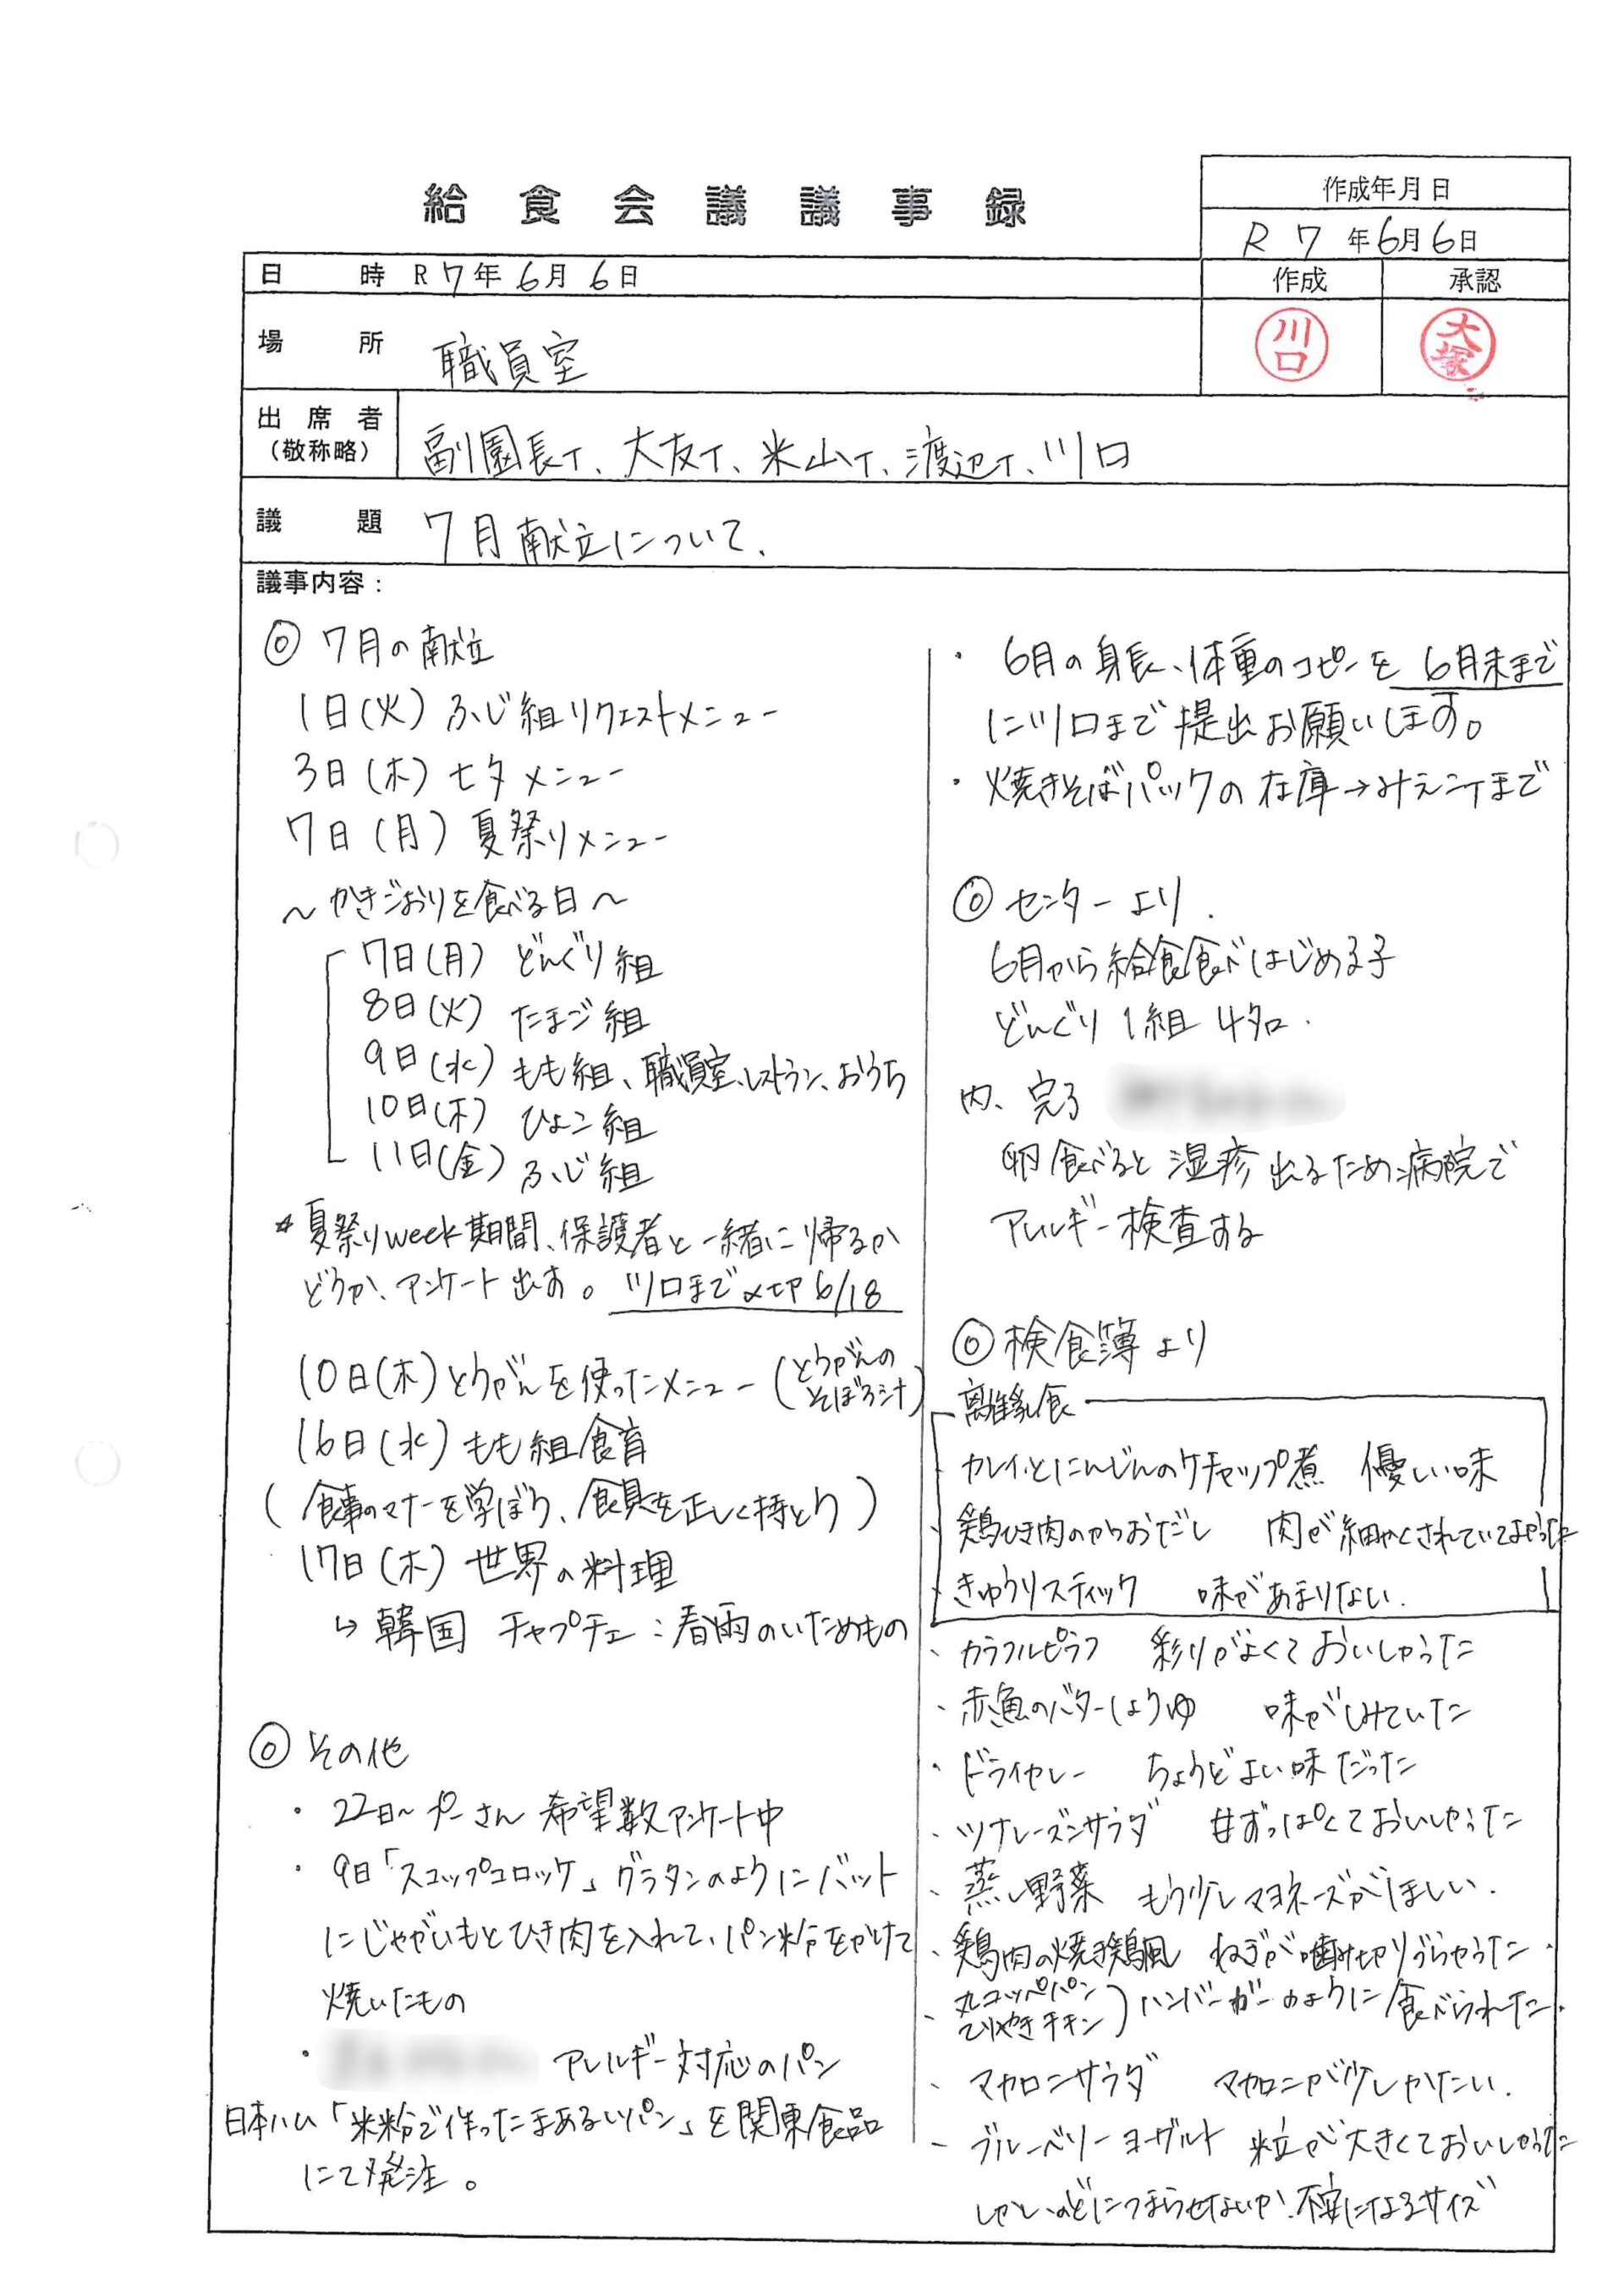 給食会議議事録
作成年月日
R 7 年 6月 6日
作成 承認
川口
大塚
日時 R 7年 6月 6日
場所 職員室
出席者
(敬称略)
副園長T、大友T、米山T、渡辺T、川口
議題 7月献立について、
議事内容:
◎ 7月の献立
1日(火) ふじ組リクエストメニュー
3日(木) 七夕メニュー
7日(月) 夏祭りメニュー
~かきごおりを食べる日~
7日(月) どんぐり組
8日(火) たまご組
9日(水) もも組、職員室、レストラン、おうち
10日(木) ひよこ組
11日(金) ふじ組
*夏祭りweek期間、保護者と一緒に帰るか
どうか、アンケート出す。川口まで〆切6/18
10日(木)とうがんを使ったメニュー(とうがんの
そぼろ汁)
16日(水)もも組食育
(食事のマナーを学ぼう、食具を正しく持とう)
17日(木) 世界の料理
↳ 韓国 チャプチェ:春雨のいためもの
◎ その他
・22日~プーさん 希望数アンケート中
・9日「スコップコロッケ」グラタンのようにバット
にじゃがいもとひき肉を入れて、パン粉をかけて
焼いたもの
・ アレルギー対応のパン
日本ハム「米粉で作ったまあるいパン」を関東食品
にて発注。
・6月の身長、体重のコピーを 6月末まで
に川口まで提出お願いします。
・焼きそばパックの在庫→みえこTまで
◎ センターより.
6月から給食食べはじめる子
どんぐり1組 4名.
内、完了
卵食べると湿疹出るため病院で
アレルギー検査する
◎ 検食簿より
離乳食
・カレイとにんじんのケチャップ煮 優しい味
・鶏ひき肉のからおだし 肉が細かくされていてよかった
・きゅうりスティック 味があまりない.
・カラフルピラフ 彩りがよくておいしかった
・赤魚のバターしょうゆ 味がしみていた
・ドライカレー ちょうどよい味だった
・ツナレーズンサラダ 甘ずっぱくておいしかった
・蒸し野菜 もう少しマヨネーズがほしい.
・鶏肉の焼き鶏風 ねぎが噛み切りづらかった.
・丸コッペパン
てりやきチキン)ハンバーガーのように食べられた.
・マカロニサラダ マカロニが少しかたい.
・ブルーベリーヨーグルト 粒が大きくておいしかった
しかし、のどにつまらせないか、不安になるサイズ